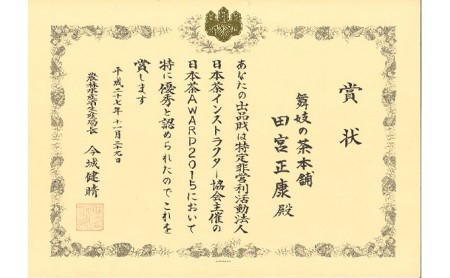 賞状
舞妓の茶本舗
田宮正康 殿
あなたの出品財は特定非営利活動法人
日本茶インストラクター協会主催の
日本茶AWARD2015において
特に優秀と認められたのでこれを
賞します
平成二十七年十一月二十九日
農林水産省生産局長 今城健晴